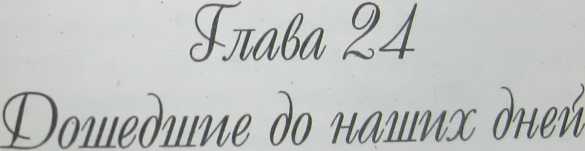 Глава 24
Дошедшие до наших дней